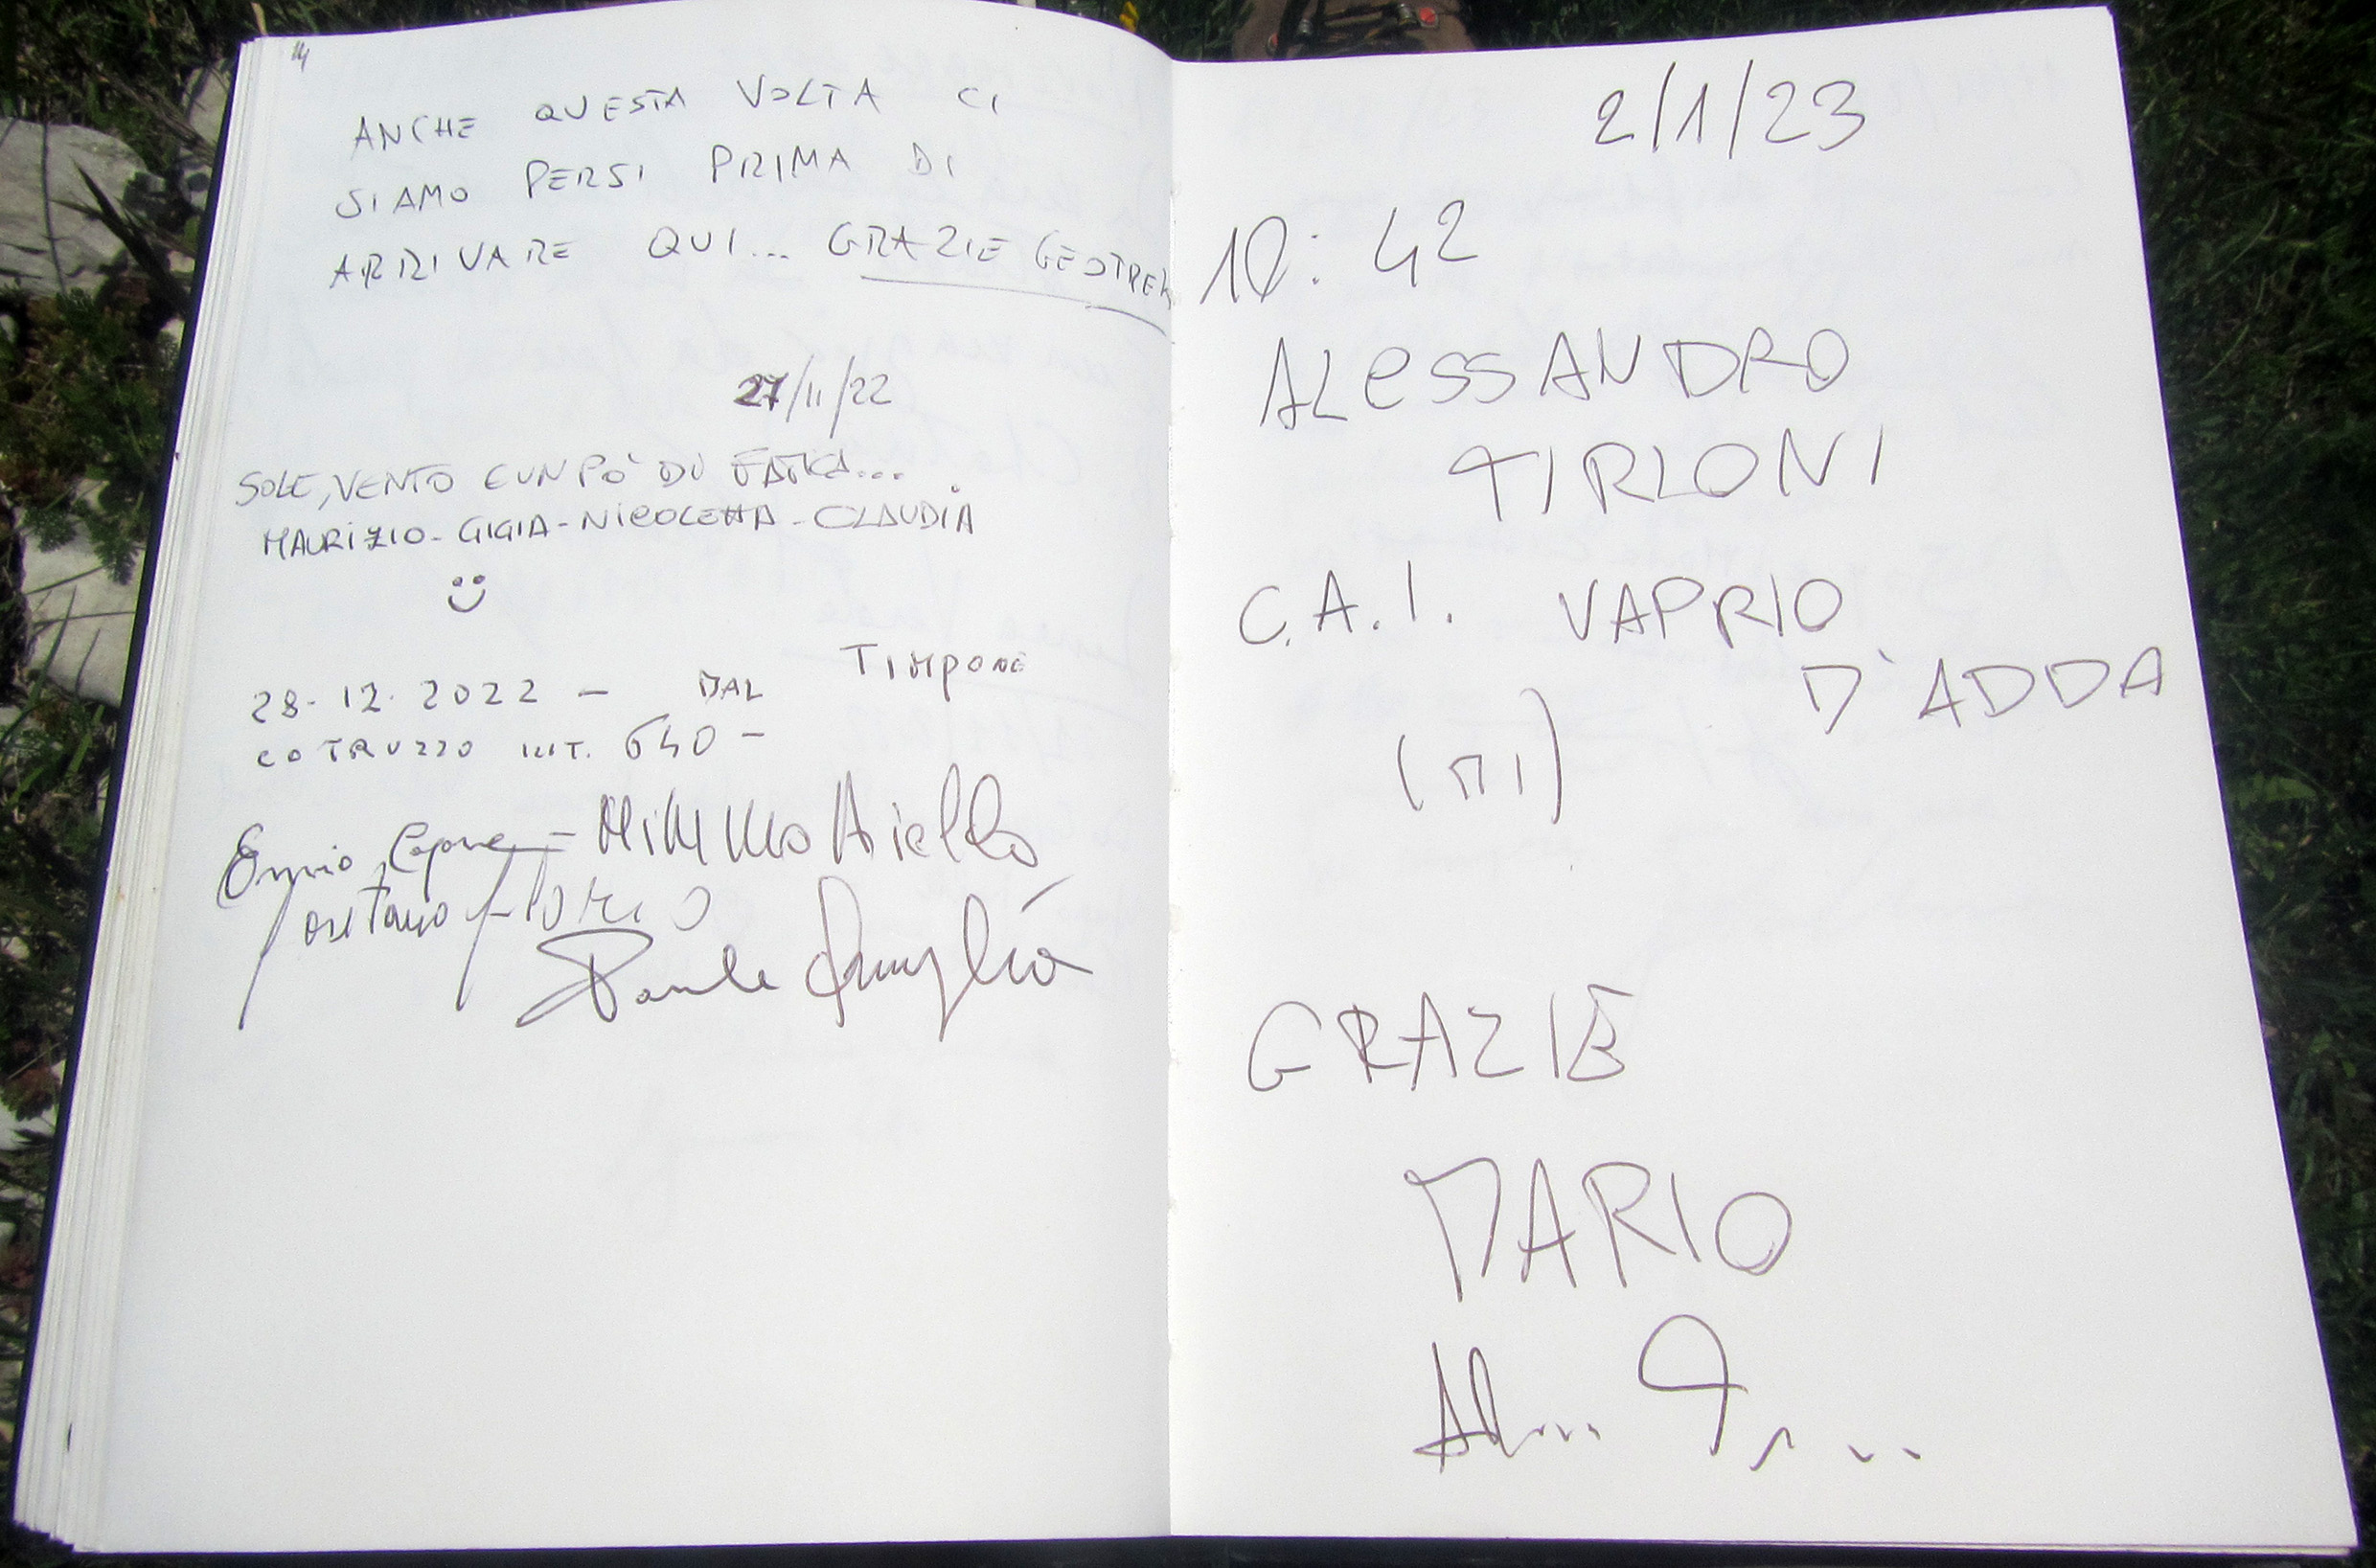 ANCHE QUESTA VOLTA CI
SIAMO PERSI PRIMA DI
ARRIVARE QUI... GRAZIE GEOTREK
27/11/22
SOLE, VENTO E UN PO' DI FATICA...
MAURIZIO - GIGIA - NICOLETTA - CLAUDIA
28-12-2022 - DAL TIMPONE
COTRUZZO INT. 640 -
Ennio Capone - Mimmo Aiello
Paola
2/1/23
10:42
ALeSSANDRO
TIRLONI
C.A.I. VAPRIO
D'ADDA
(MI)
GRAZIE
MARIO